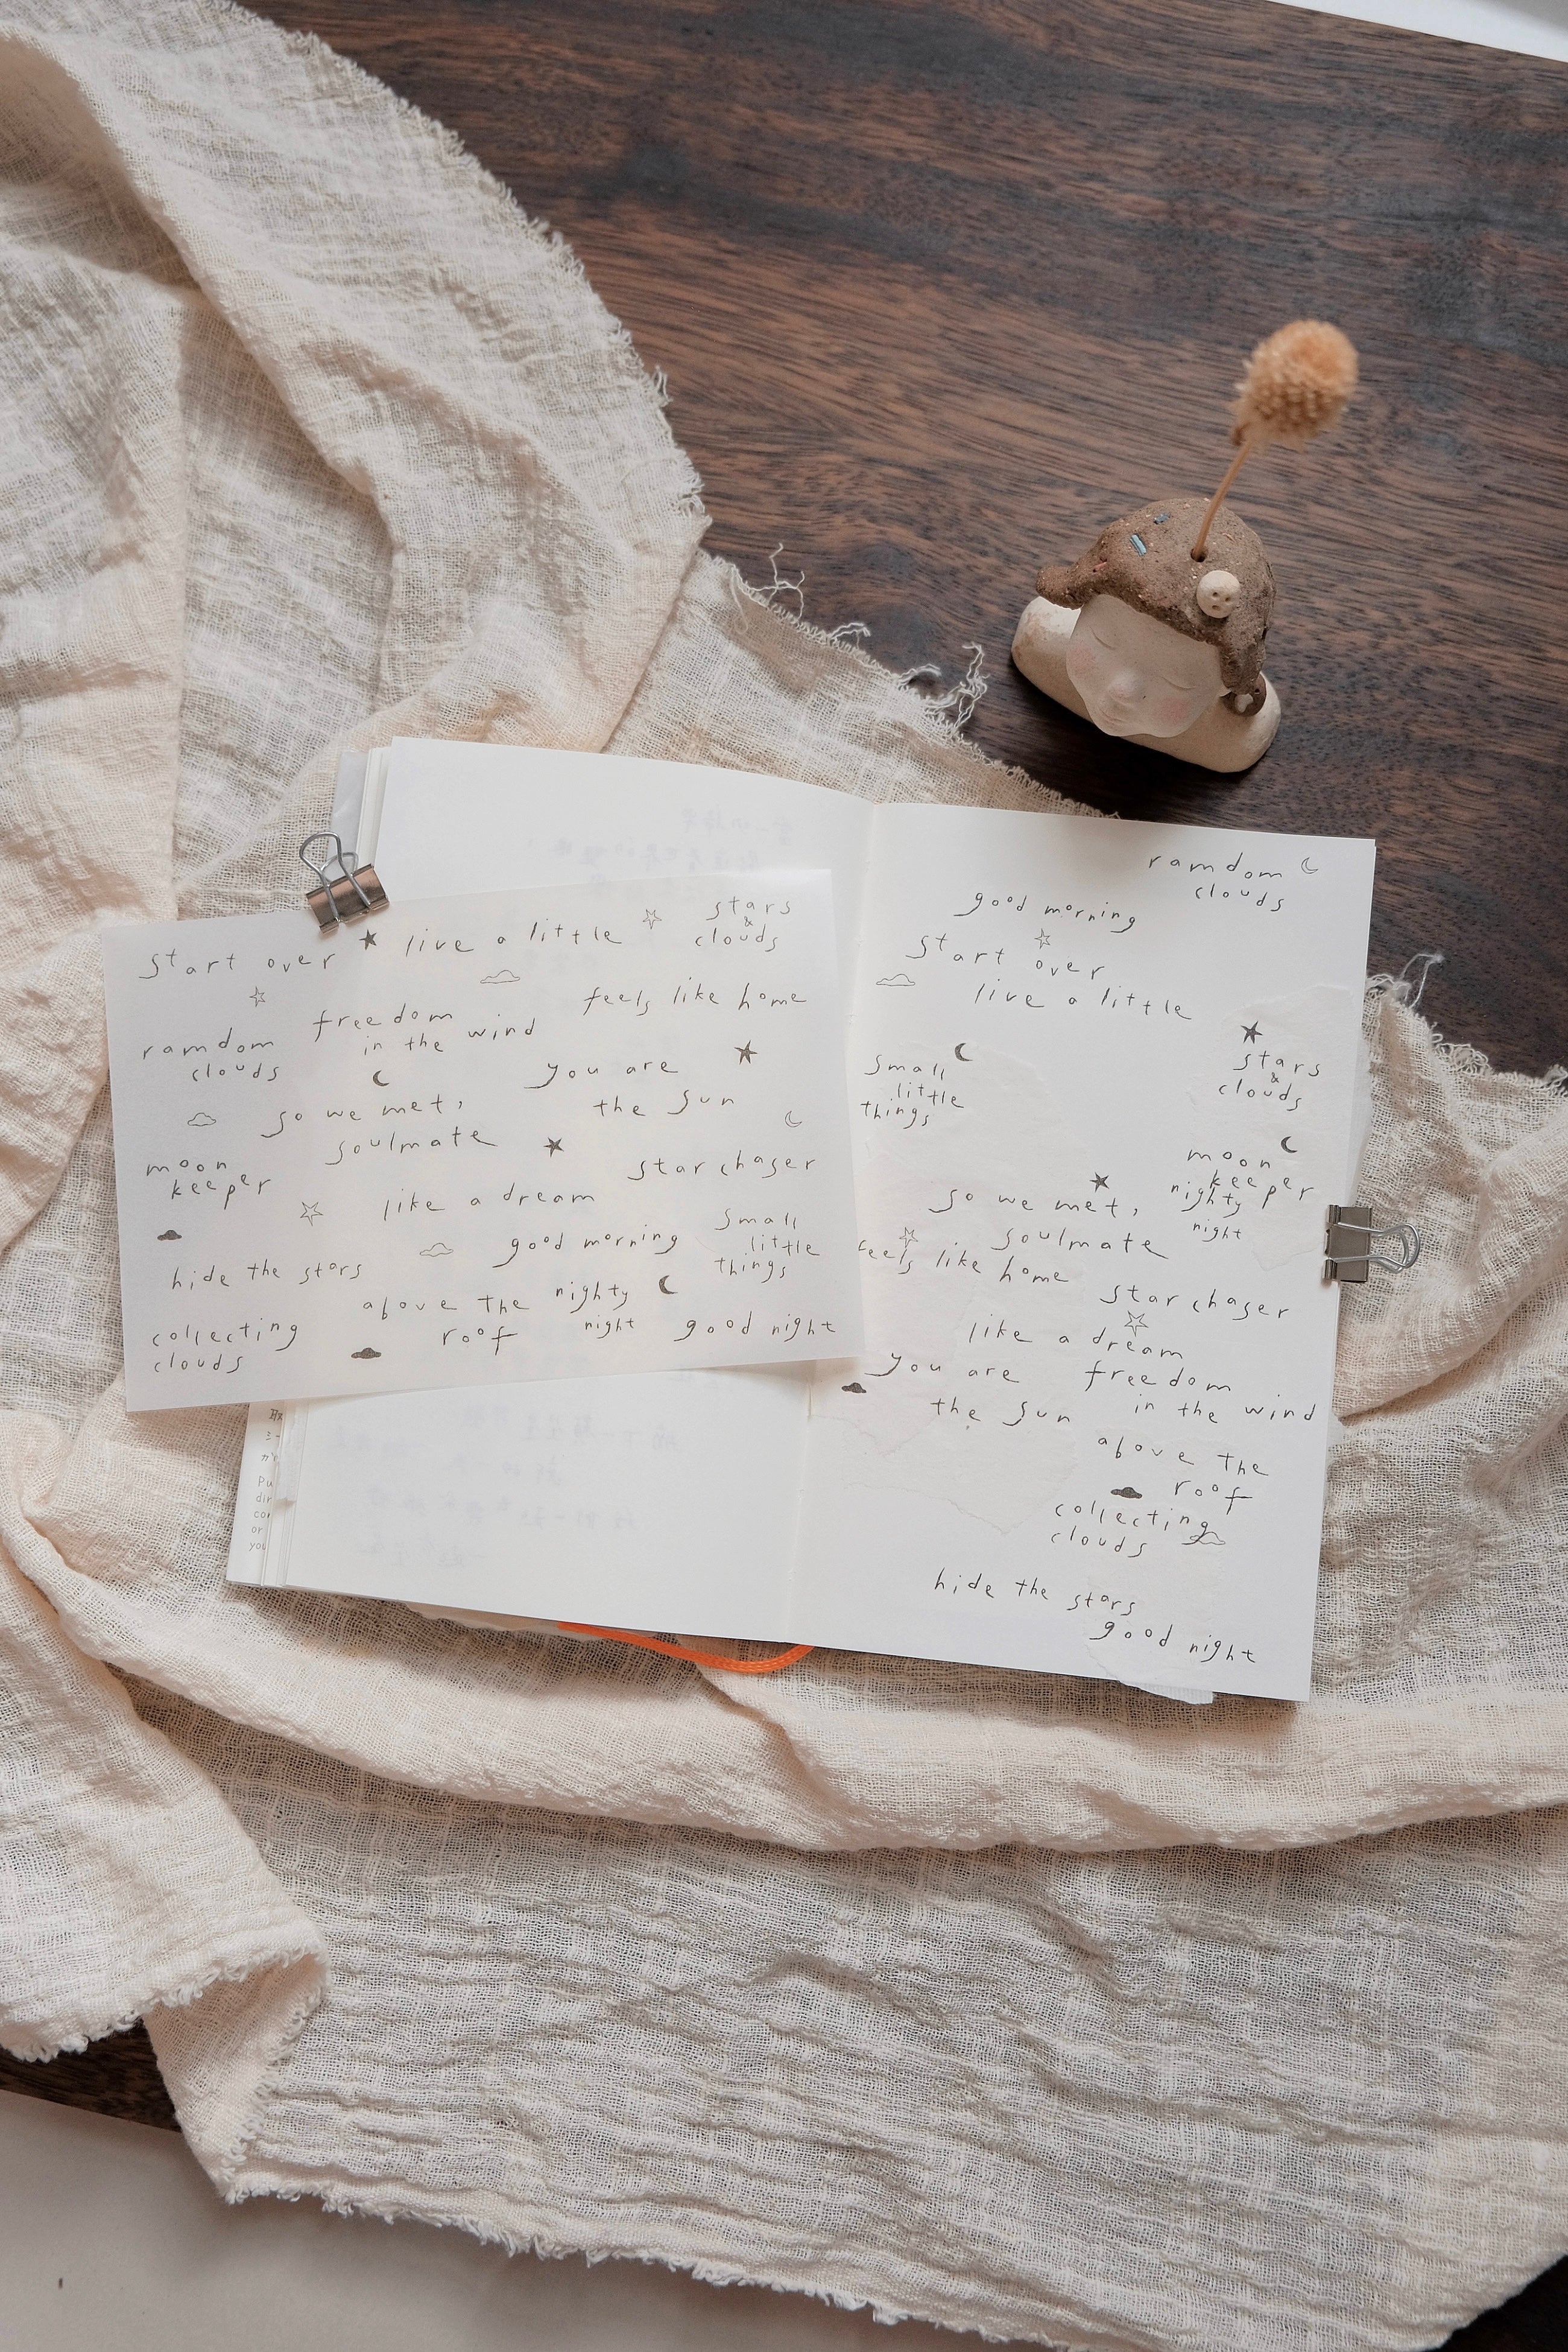 start over
live a little
stars
&
clouds
ramdom
clouds
freedom
in the wind
feels like home
so we met,
soulmate
you are
the sun
moon
keeper
like a dream
starchaser
hide the stars
good morning
small
little
things
collecting
clouds
above the
roof
nighty
night
good night
Pu
dir
con
or
you
ramdom
clouds
good morning
start over
live a little
small
little
things
stars
&
clouds
moon
keeper
nighty
night
so we met,
soulmate
feels like home
starchaser
like a dream
you are
the sun
freedom
in the wind
above the
roof
collecting
clouds
hide the stars
good night